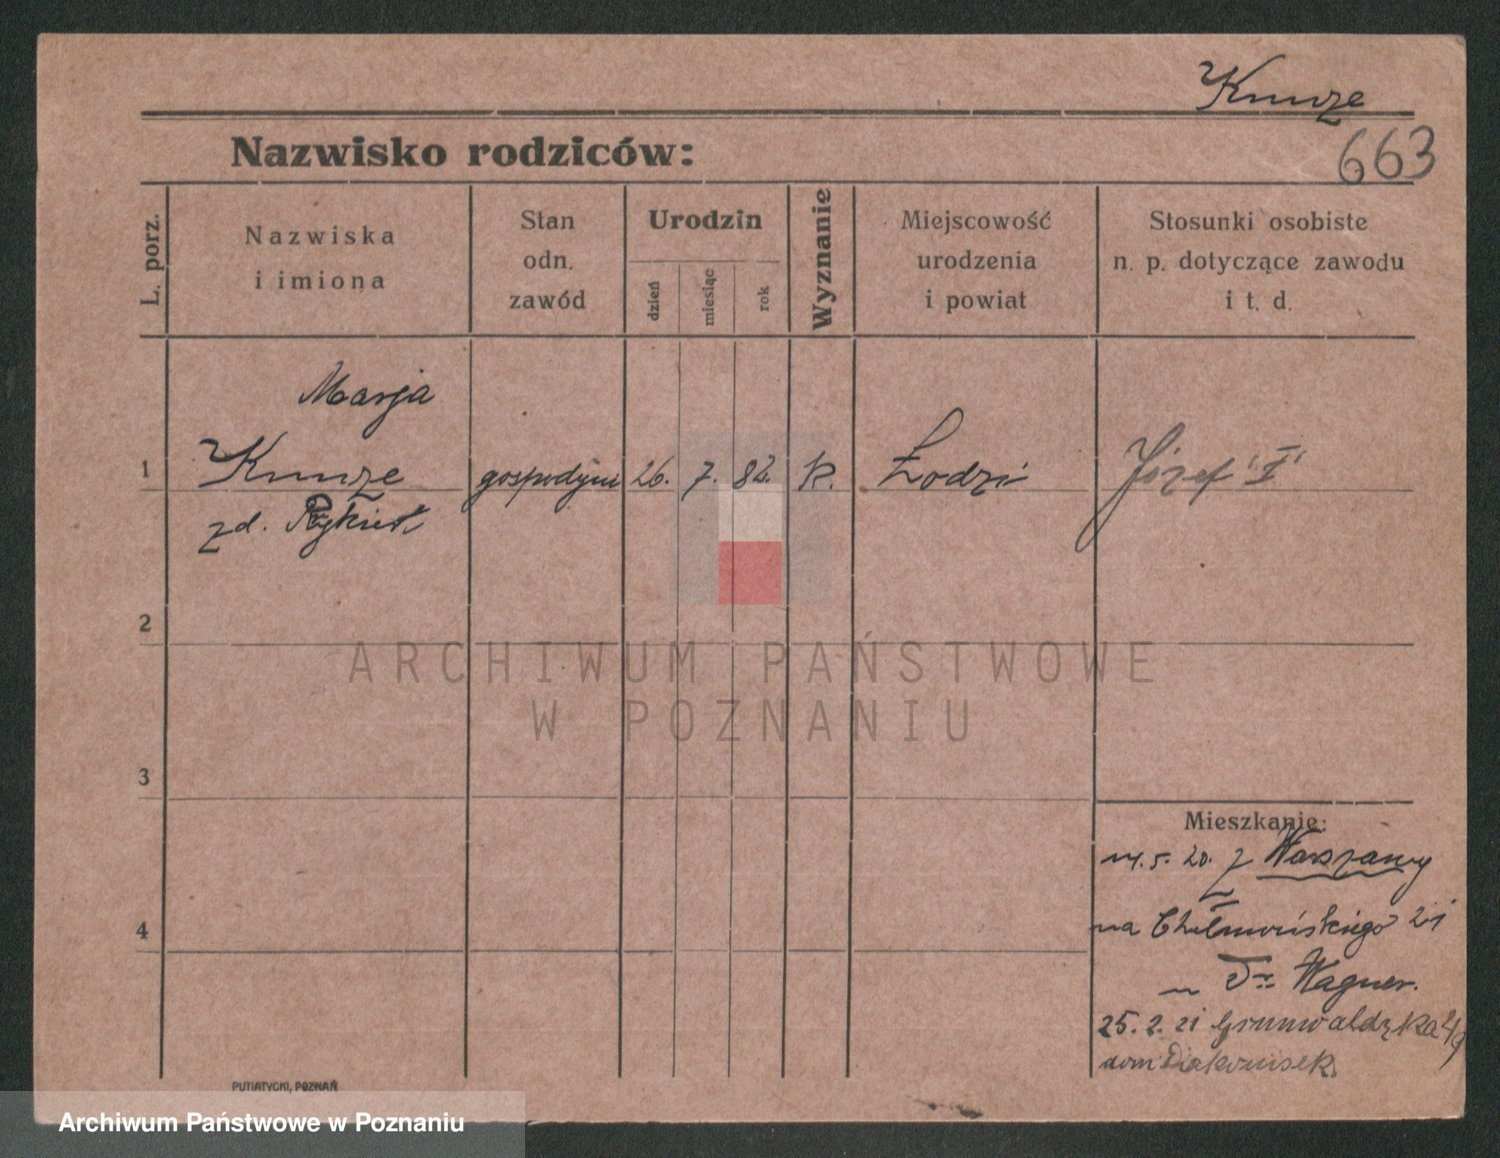 Kunze
663
Nazwisko rodziców:
L. porz.
Nazwiska
i imiona
Stan
odn.
zawód
Urodzin
dzień
miesiąc
rok
Wyznanie
Miejscowość
urodzenia
i powiat
Stosunki osobiste
n. p. dotyczące zawodu
i t. d.
Marja
1 Kunze gospodyni 26. 7. 82. K. Łodzi Józef "I"
zd.
2
ARCHIWUM PAŃSTWOWE
W POZNANIU
3
Mieszkanie:
14. 5. 20. z Warszawy
4
na Chełmońskiego 21
Dr Wagner.
25. 2. 21 Grunwaldzka
dom Diakonisek
PUTIATYCKI, POZNAŃ
Archiwum Państwowe w Poznaniu